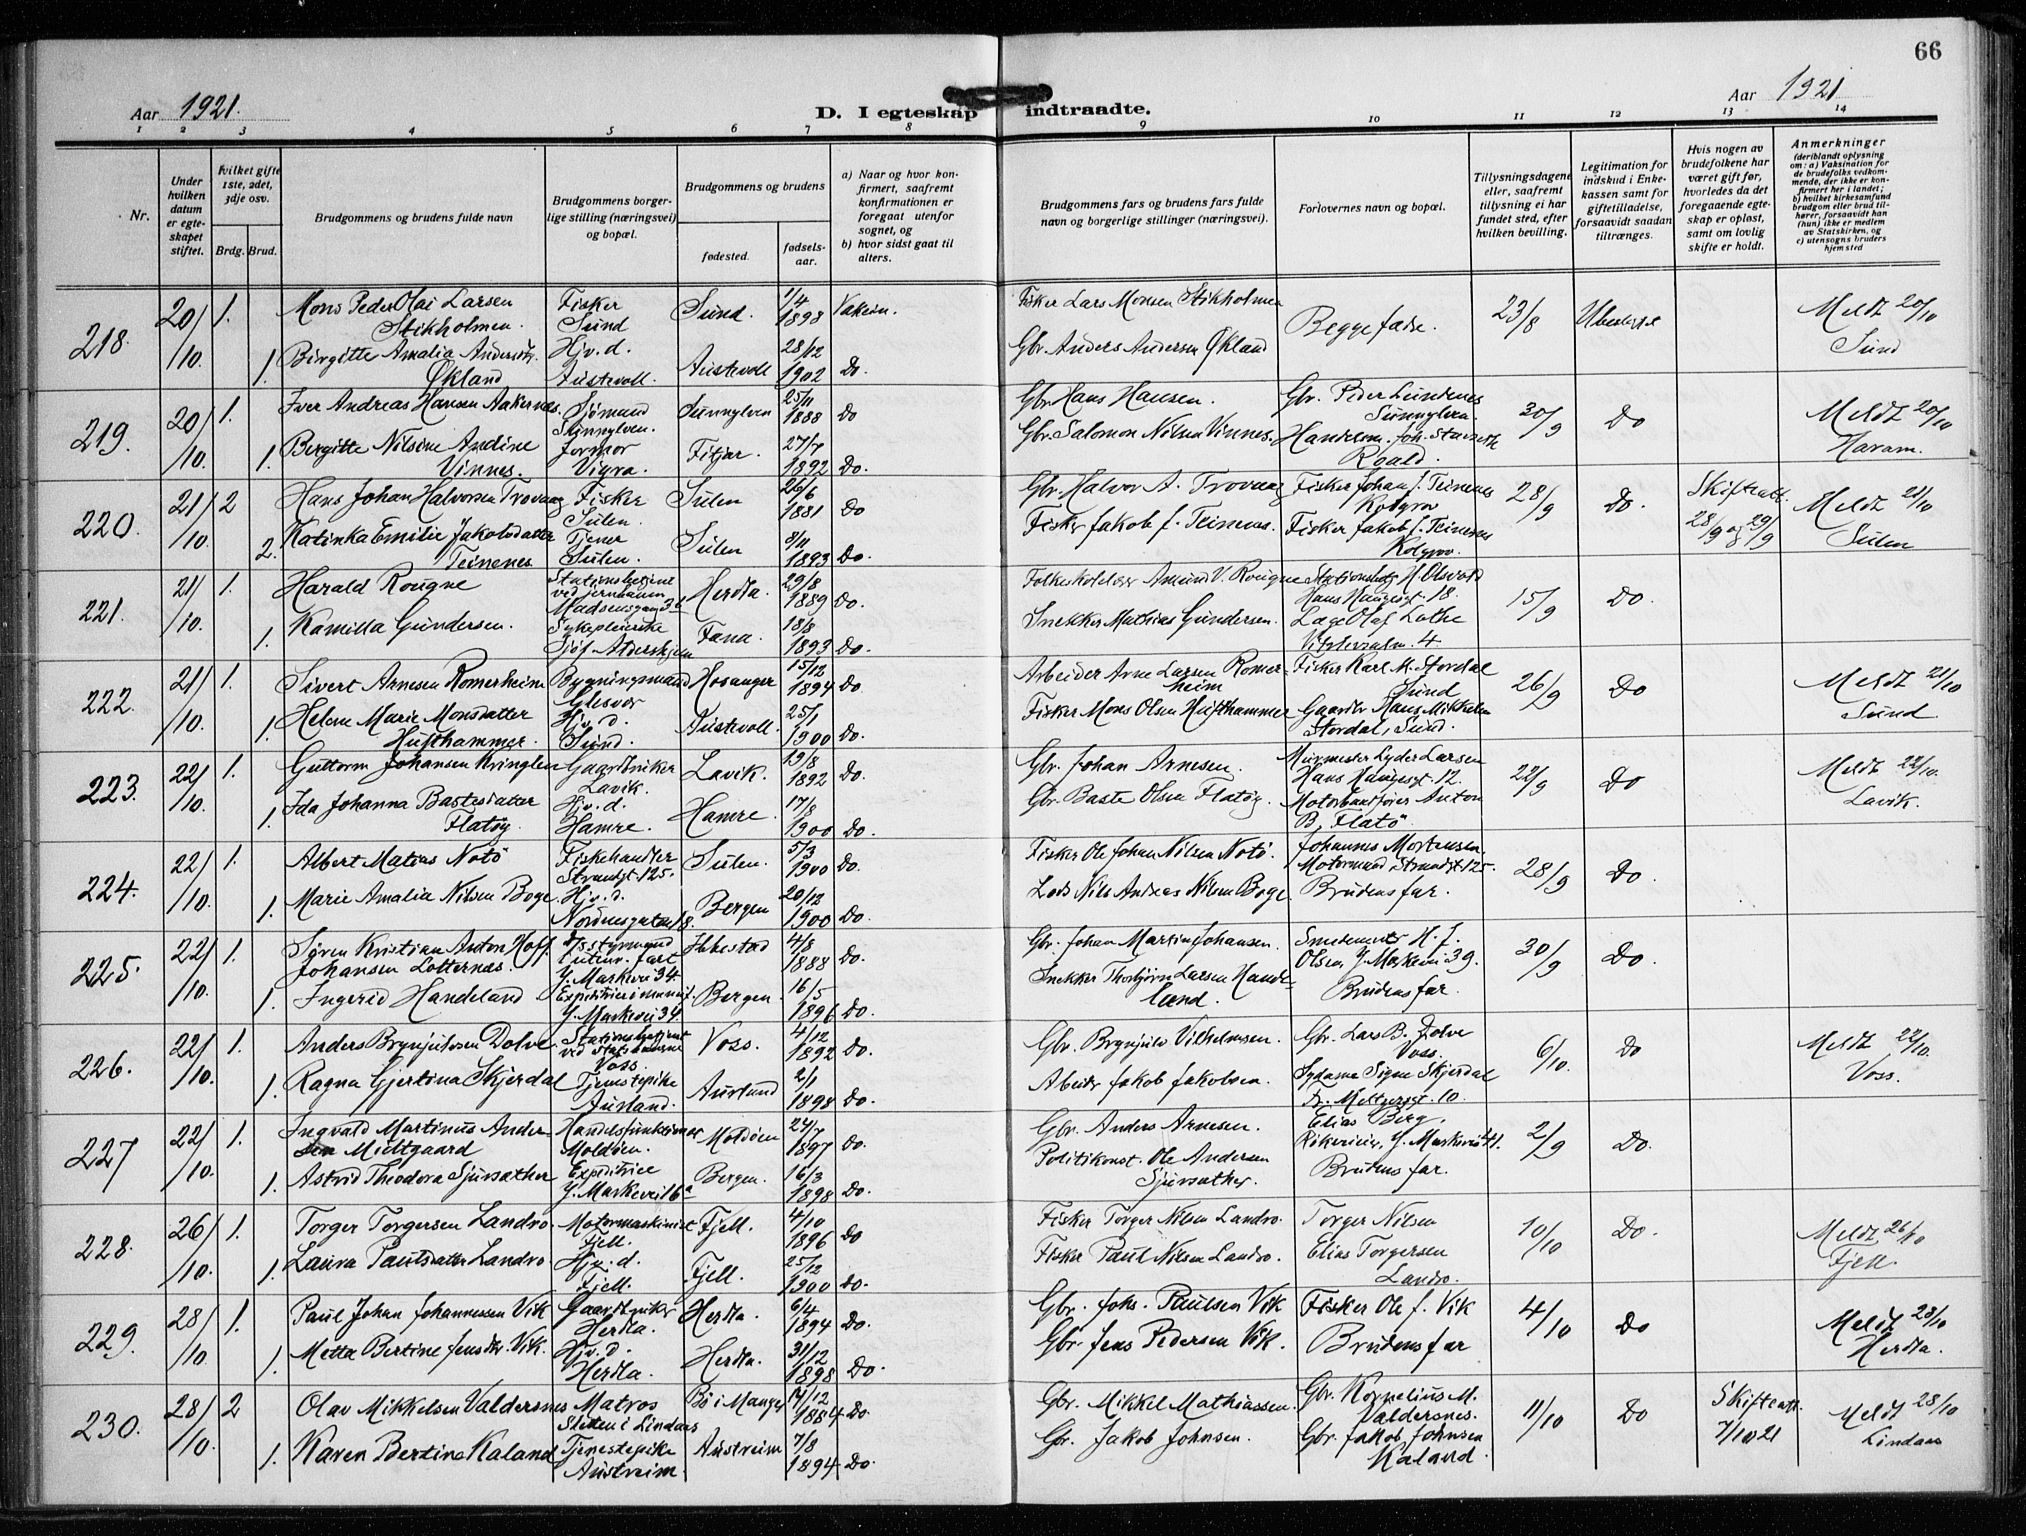 66
Aar 1921.
D. I egteskap indtraadte.
Aar 1921
1 2 3 4 5 6 7 8 9 10 11 12 13 14
Nr.
Under hvilken datum er egteskapet stiftet.
Hvilket gifte 1ste, 2det, 3dje osv.
Brdg. Brud.
Brudgommens og brudens fulde navn
Brudgommens borgerlige stilling (næringsvei) og bopæl.
Brudgommens og brudens
fødested.
fødselsaar.
a) Naar og hvor konfirmert, saafremt konfirmationen er foregaat utenfor sognet, og
b) hvor sidst gaat til alters.
Brudgommens fars og brudens fars fulde navn og borgerlige stillinger (næringsvei).
Forlovernes navn og bopæl.
Tillysningsdagene eller, saafremt tillysning ei har fundet sted, efter hvilken bevilling.
Legitimation for indskud i Enkekassen samt for giftetilladelse, forsaavidt saadan tiltrænges.
Hvis nogen av brudefolkene har været gift før, hvorledes da det foregaaende egteskap er opløst, samt om lovlig skifte er holdt.
Anmerkninger
(deriblandt oplysning om: a) Vaksination for de brudefolks vedkommende, der ikke er konfirmert her i landet; b) hvilket kirkesamfund brudgom eller brud tilhører, forsaavidt han (hun) ikke er medlem av Statskirken, og c) utensogns bruders hjemsted
218. 20/10. 1. Mons Peder Olai Larsen Stikholmen. Fisker Sund Sund. 1/4 1898 Fisker Lars Monsen Stikholmen Begge fædre. 23/8 Meldt 20/10 Sund
1. Birgitte Amalia Andersdtr. Økland Hjv. d. Austevoll. Austevoll 28/12 1902 Do. Gbr. Anders Andersen Økland
219. 20/10. 1. Iver Andreas Hansen Aakernes. Sjømand Sunnylven. Sunnylven 25/11 1888 Do Gbr. Hans Hansen. Gbr. Peder Sunnylven. 30/9 Do Meldt 20/10 Haram.
1. Bergitte Nilsine Andine Vinnes. Jormor Vigra. Fitjar. 27/7 1892 Do. Gbr. Salomon Nilsen Vinnes. Handelsm. Joh. Roald.
220. 21/10. 2 Hans Johan Halvorsen Trovaag Fisker Sulen. Sulen 26/6 1881 Do Gbr. Halvor A. Trovaag Fisker Johan J. Teinenes Kolgrov 28/9 Do. Skifteatt. 28/9 og 29/9 Meldt 21/10 Sulen
2. Katinka Emilie Jakobsdatter Teinenes Tjener Sulen. Sulen 8/11 1893 Do. Fisker Jakob J. Teinenes. Fisker Jakob J. Teinenes Kolgrov.
221. 21/10. 1. Harald Rougne Stationsbetjene ved jernbanen Madsensgang 3 Herdla. 29/8 1889 Do. Amund V. Rougne H. Olsvold Hans Haugesgt. 18. 15/9 Do.
1. Kamilla Gundersen. Sykepleierske Fana. 18/8 1893 Do. Snekker Mathias Gundersen. Læge Olaf Lothe 4
222. 21/10. 1. Sivert Arnesen Romerheim Bygningsmand Glesvær Hosanger 15/12 1894 Do Arbeider Arne Larsen Romerheim Fisker Karl M. Stordal Sund 26/9 Do Meldt 21/10 Sund
1. Helene Marie Monsdatter Hufthammer. Hjv. d. Sund. Austevoll. 25/1 1900 Do. Fisker Mons Olsen Hufthammer Gaardbr Hans Mikkelsen Stordal, Sund.
223. 22/10. 1. Guttorm Johansen Kringlen Gaardbruker Lavik. Lavik. 19/8 1892 Do. Gbr. Johan Arnesen. Murmester Lyder Larsen Hans Haugesgt. 12. 22/9 Do Meldt 22/10. Lavik.
1. Ida Johanna Bastesdatter Flatøy. Hjv. d. Hamre. Hamre. 17/8 1900 Do. Gbr. Baste Olsen Flatøy. Motorbaatfører Anton B. Flatø
224. 22/10. 1. Albert Matias Notø Fiskehandler Strandgt. 125. Sulen. 5/3 1900 Do Fisker Ole Johan Nilsen Notø. Johannes Mortensen. Motormand Strandgt. 125. 28/9 Do.
1. Marie Amalia Nilsen Boge. Hjv. d. Nordnesgaten 18. Bergen 20/12 1900 Do. Lods Nils Andreas Nilsen Boge Brudens far.
225. 22/10. 1. Søren Kristian Anton Hoff Johansen Lotternes. styrmand i utenr. fart Y. Markevei 34. Ibbestad 4/8 1888 Do. Gbr. Johan Martin Johansen. Smedemester H. J. Olsen, Y. Markevei 39. 30/9 Do.
1. Ingerid Handeland Y. Markevei 34. Bergen. 16/5 1896 Do. Snekker Thorbjørn Larsen Handeland. Brudens far.
226. 22/10. 1. Anders Brynjulvsen Dolve Stationsbetjent ved Statsbanene Voss. Voss. 4/12 1892 Do. Gbr. Brynjulv Vilhelmsen. Gbr. Lars B. Dolve Voss. 6/10. Do Meldt 22/10. Voss.
1. Ragna Gjertina Skjerdal Tjenestepike Aurland. Aurland 2/1 1898 Do. Arbeider Jakob Jakobsen. Sydame Signe Skjerdal Dr. 10.
227 22/10. 1. Ingvald Martinus Andersen Midtgaard Handelsfunktionær Moldöen. Moldöen 24/7 1897 Do. Gbr. Anders Arnesen. Elias Berg, Y. Markevei 41. 2/9 Do.
1. Astrid Theodora Sjursæther Expeditrice Y. Markevei 16a Bergen. 16/3 1898 Do. Politikonst. Ole Andersen Sjursæther. Brudens far.
228. 26/10. 1. Torger Torgersen Landro Motormaskinist Fjell. Fjell. 4/10 1896 Do Fisker Torger Nilsen Landro. Torger Nilsen 10/10 Do. Meldt 26/10 Fjell.
1. Laura Paulsdatter Landro Hjv. d. Fjell. Fjell. 25/12 1900 Do. Fisker Paul Nilsen Landro. Elias Torgersen Landro.
229. 28/10. 1. Paul Johan Johannessen Vik Gaardbruker Herdla. Herdla. 6/4 1894 Do. Gbr. Johs. Paulsen Vik Fisker Ole J. Vik 4/10 Do Meldt 28/10 Herdla.
1. Metta Bertine Jensdtr. Vik. Hjv. d. Herdla Herdla. 31/12 1898 Do. Gbr. Jens Pedersen Vik. Brudens far
230. 28/10. 2 Olav Mikkelsen Valdersnes Matros Sletten i Lindaas Bø i Manger 14/12 1884 Do. Gbr. Mikkel Mathiassen. Gbr. Kornelius M. Valdersnes. 11/10 Do Skifteatt. 7/10 21 Meldt 28/10 Lindaas
1. Karen Bertine Kaland Tjenestepike Austreim. Austreim 7/8 1894 Do. Gbr. Jakob Johnsen. Gbr. Jakob Johnsen Kaland.